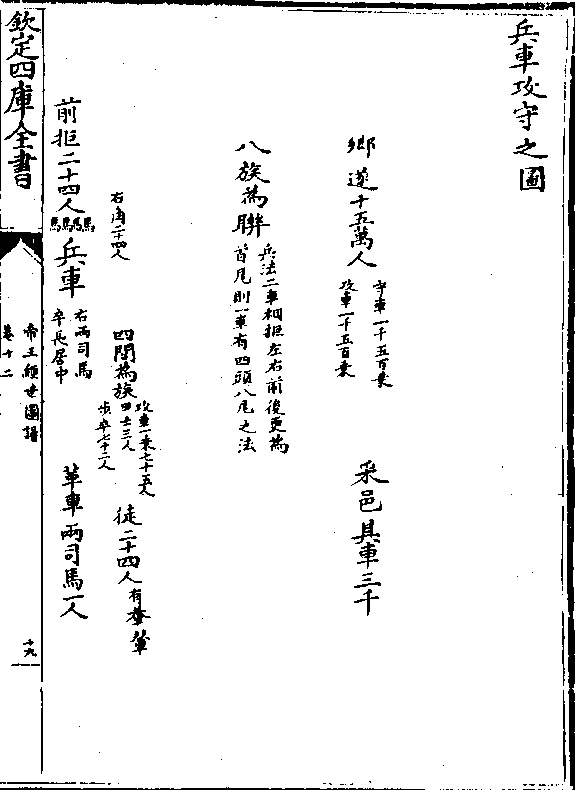 兵車攻守之圖
鄉遂十五萬人
守車一千五百乗
攻車一千五百乗
采邑具車三千
八族為聯
兵法二車相拒左右前後更為
首尾則一車有四頭八尾之法
右角二十四人
四閭為族
攻車一乗七十五人
甲士三人
步卒七十二人
徒二十四人
有輂輦
前拒二十四人
馬馬馬馬
兵車
右兩司馬
卒長居中
革車兩司馬一人
欽定四庫全書
帝王經世圖譜
卷十二
十六